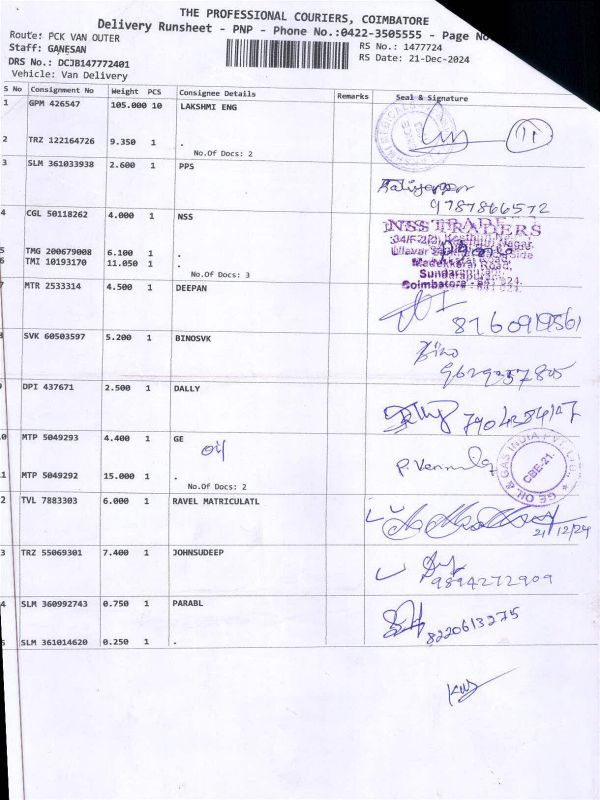 THE PROFESSIONAL COURIERS, COIMBATORE
Delivery Runsheet - PNP - Phone No.:0422-3505555 - Page No
Route: PCK VAN OUTER
RS No.: 1477724
Staff: GANESAN
RS Date: 21-Dec-2024
DRS No.: DCJB147772401
Vehicle: Van Delivery
S No Consignment No Weight PCS Consignee Details Remarks Seal & Signature
1 GPM 426547 105.000 10 LAKSHMI ENG
2 TRZ 122164726 9.350 1 .
No.Of Docs: 2
3 SLM 361033938 2.600 1 PPS
9787866572
4 CGL 50118262 4.000 1 NSS
NSS TRADERS
5 TMG 200679008 6.100 1 .
6 TMI 10193170 11.050 1 .
No.Of Docs: 3
Madukkarai Road,
Sundarapuram,
Coimbatore - 641 024.
7 MTR 2533314 4.500 1 DEEPAN
8760919561
8 SVK 60503597 5.200 1 BINOSVK
Bino
9 DPI 437671 2.500 1 DALLY
0 MTP 5049293 4.400 1 GE
oil
GE OIL & GAS INDIA PVT. LTD.
CBE-21.
1 MTP 5049292 15.000 1 .
No.Of Docs: 2
2 TVL 7883303 6.000 1 RAVEL MATRICULATL
21/12/24
3 TRZ 55069301 7.400 1 JOHNSUDEEP
9894272909
4 SLM 360992743 0.750 1 PARABL
8220613275
5 SLM 361014620 0.250 1 .